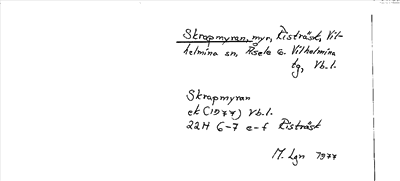 Skrapmyran, myr, Risträsk, Vil-
helmina sn, Åsele o. Vilhelmina
tg, Vb.l.
Skrapmyran
ek (1977) Vb.l.
22H 6-7 e-f Risträsk
M. Lgn 1977